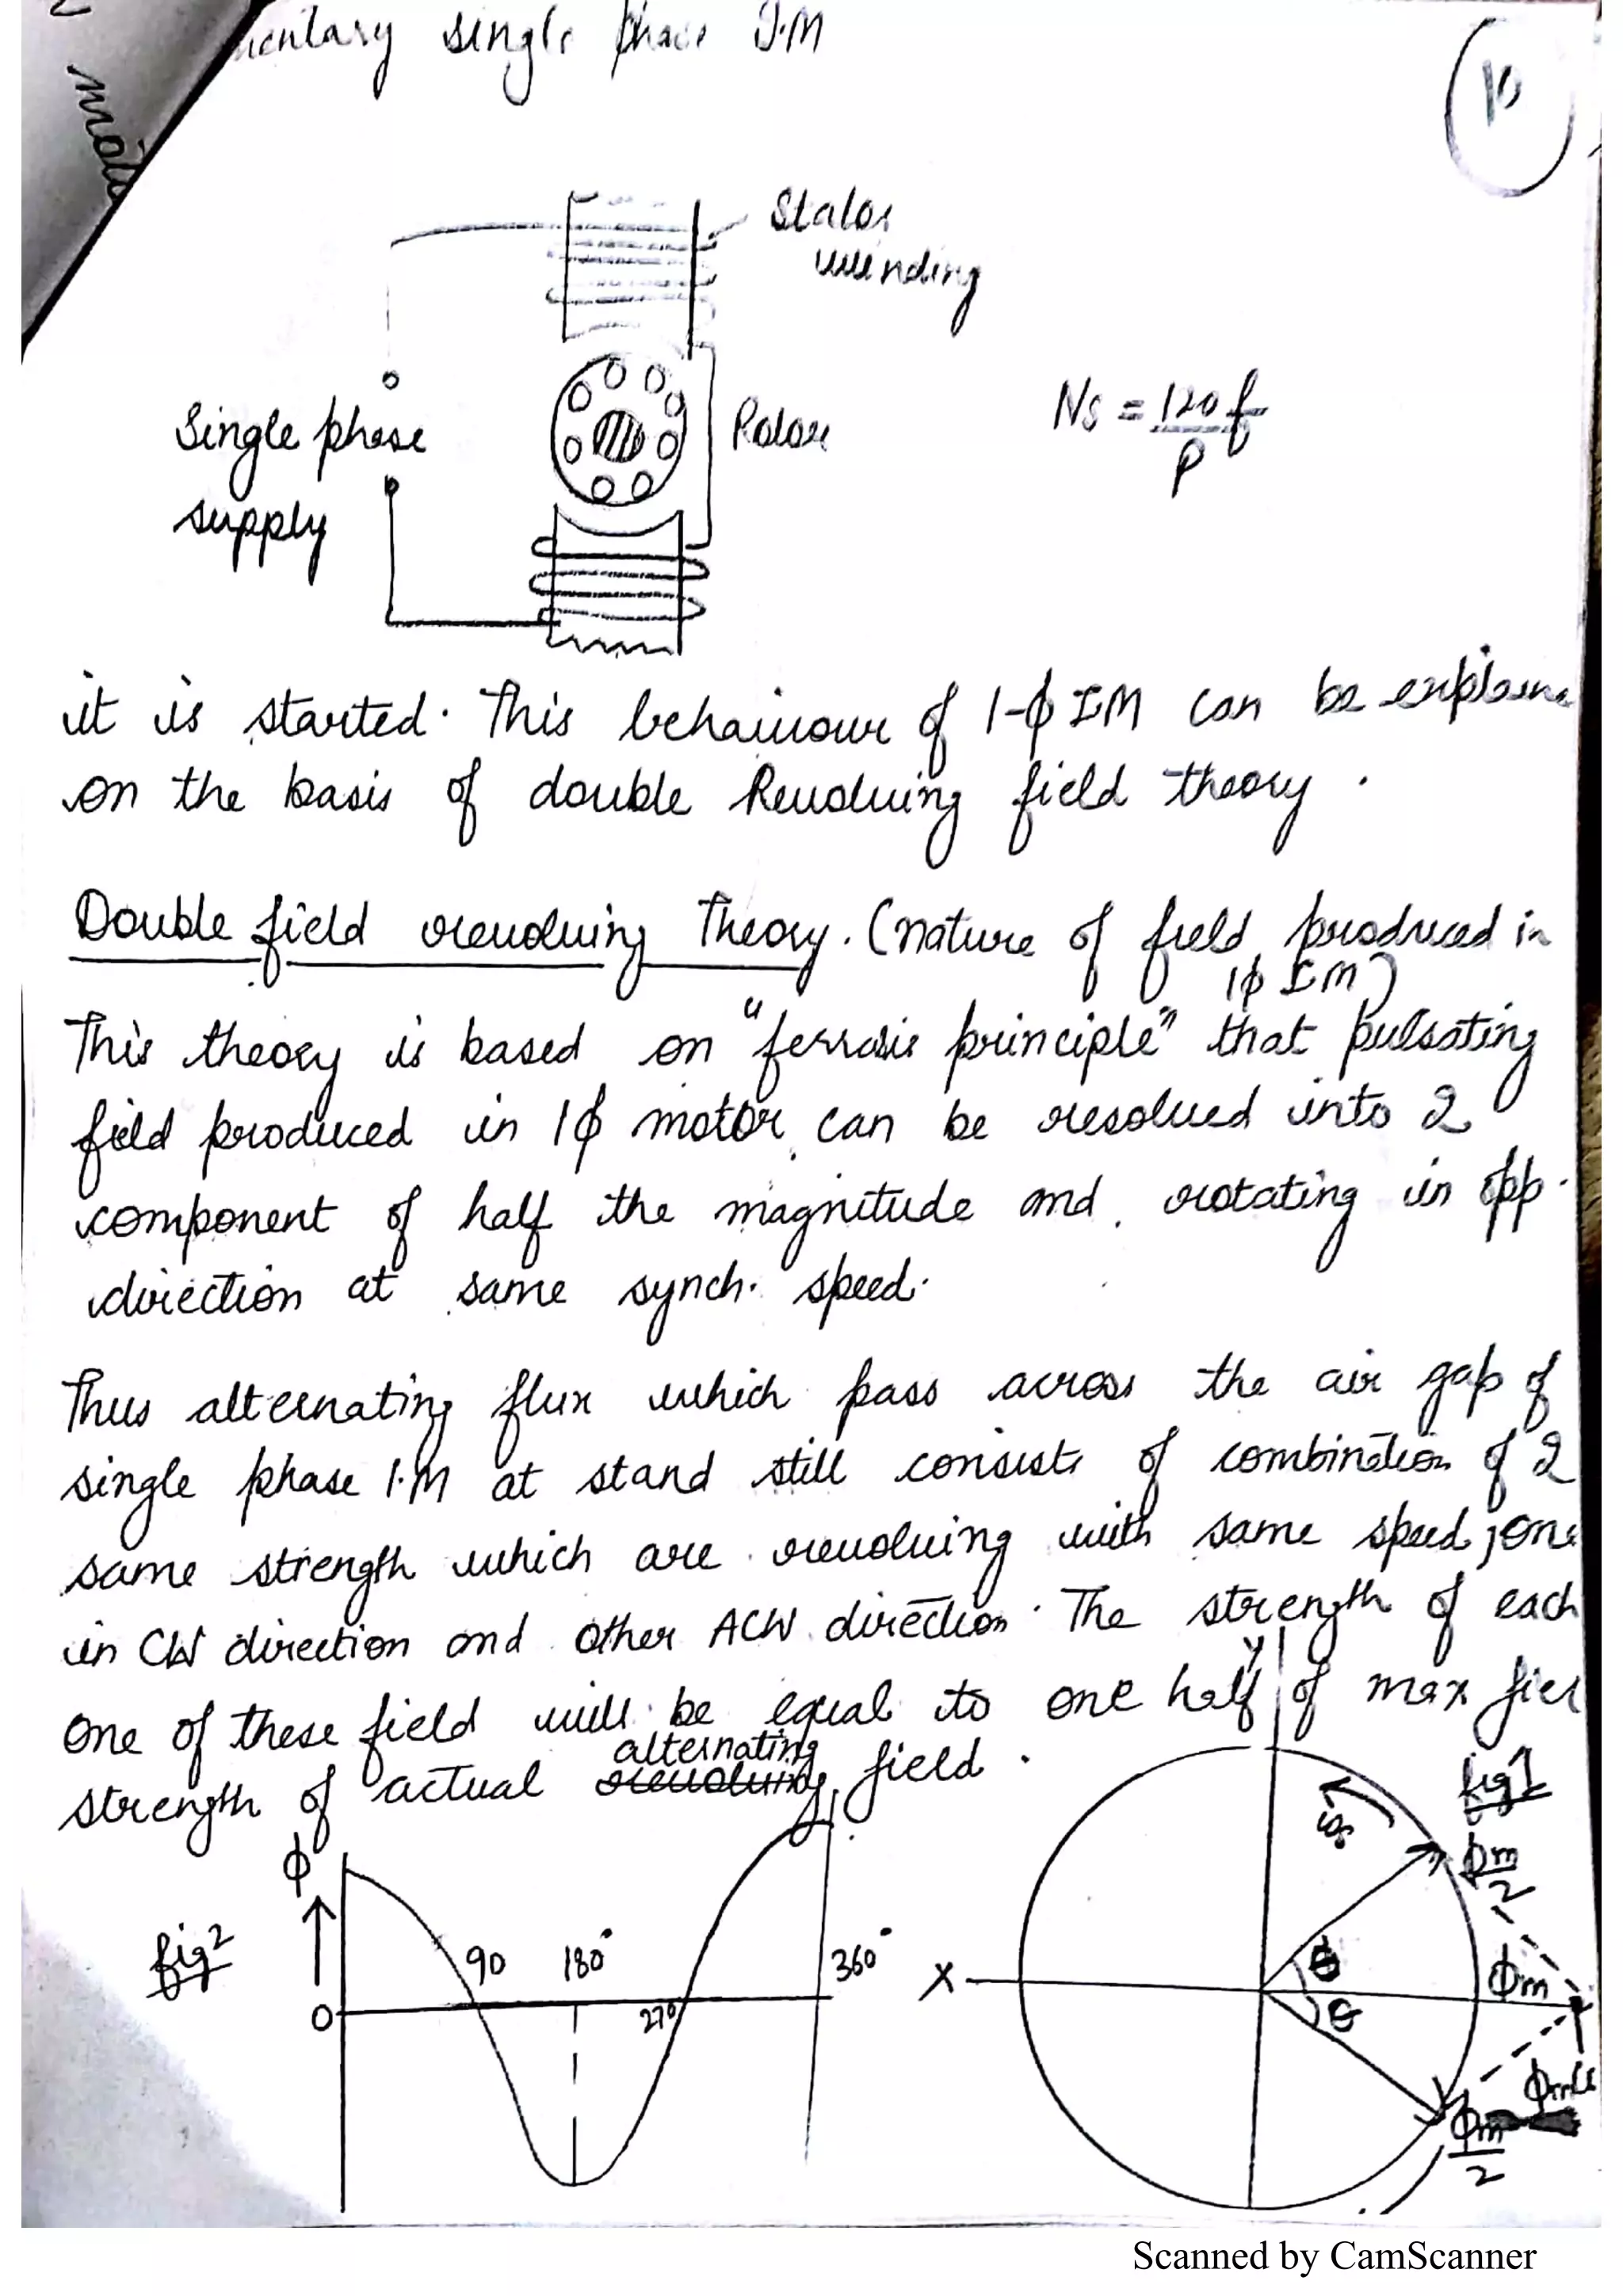 single phase I.M
10
Stator
winding
Single phase
supply
Rotor
Ns = 120f
P
it is started. This behaviour of 1-ϕ IM can be
on the basis of double Revolving field theory.
Double field revolving Theory. (nature of field produced in
1ϕ IM)
This theory is based on "ferraris principle" that pulsating
field produced in 1ϕ motor can be resolved into 2
component of half the magnitude and rotating in opp.
direction at same synch. speed.
Thus alternating flux which pass across the air gap of
single phase I.M at stand still consists of combination of 2
same strength which are revolving with same speed, one
in CW direction and other ACW direction. The strength of each
one of these field will be equal to one half of max
alternating
strength of actual revolving field.
Y
fig 1
ϕm
2
ϕ
fig 2
90
180°
270
360°
0
X
θ
θ
ϕm
ϕm
2
Scanned by CamScanner